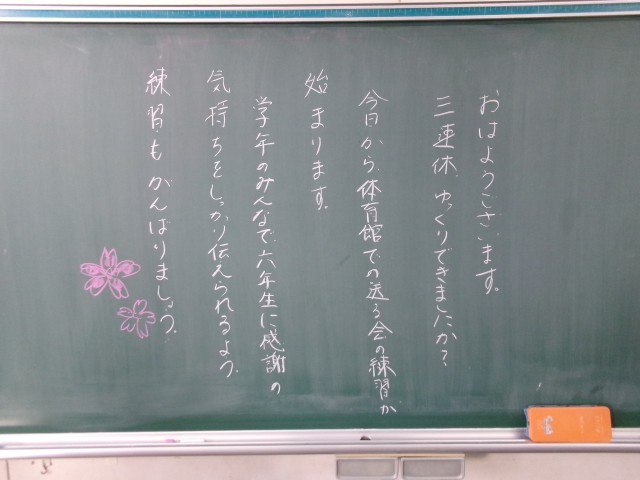 おはようございます。
三連休、ゆっくりできましたか?
今日から、体育館での送る会の練習が
始まります。
学年のみんなで、六年生に感謝の
気持ちをしっかり伝えられるよう、
練習もがんばりましょう。